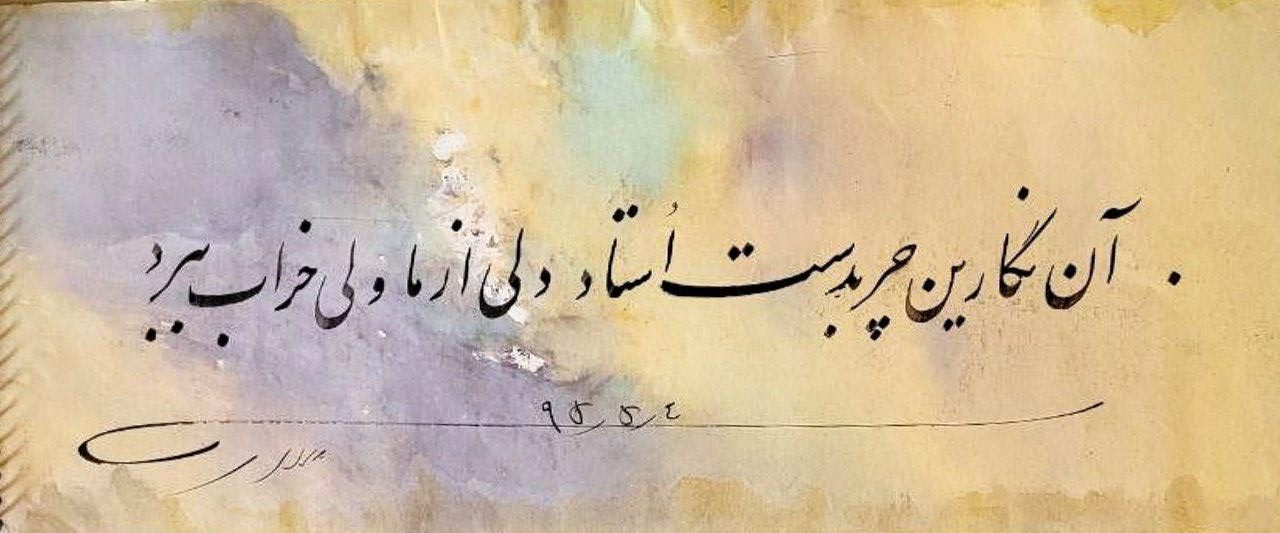 آن نگارین چربدست اُستاد دلی از ما ولی خراب ببرد
۹۵/۵/۴